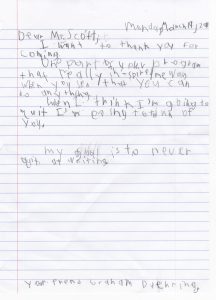 Dear Mr. Scott,
I want to thank you for
coming.
One part of your program
that really inspired me was
when you said that you can
do anything.
When I think I'm going to
quit I'm going to think of
you.
my goal is to never
quit at writing
your friend Graham